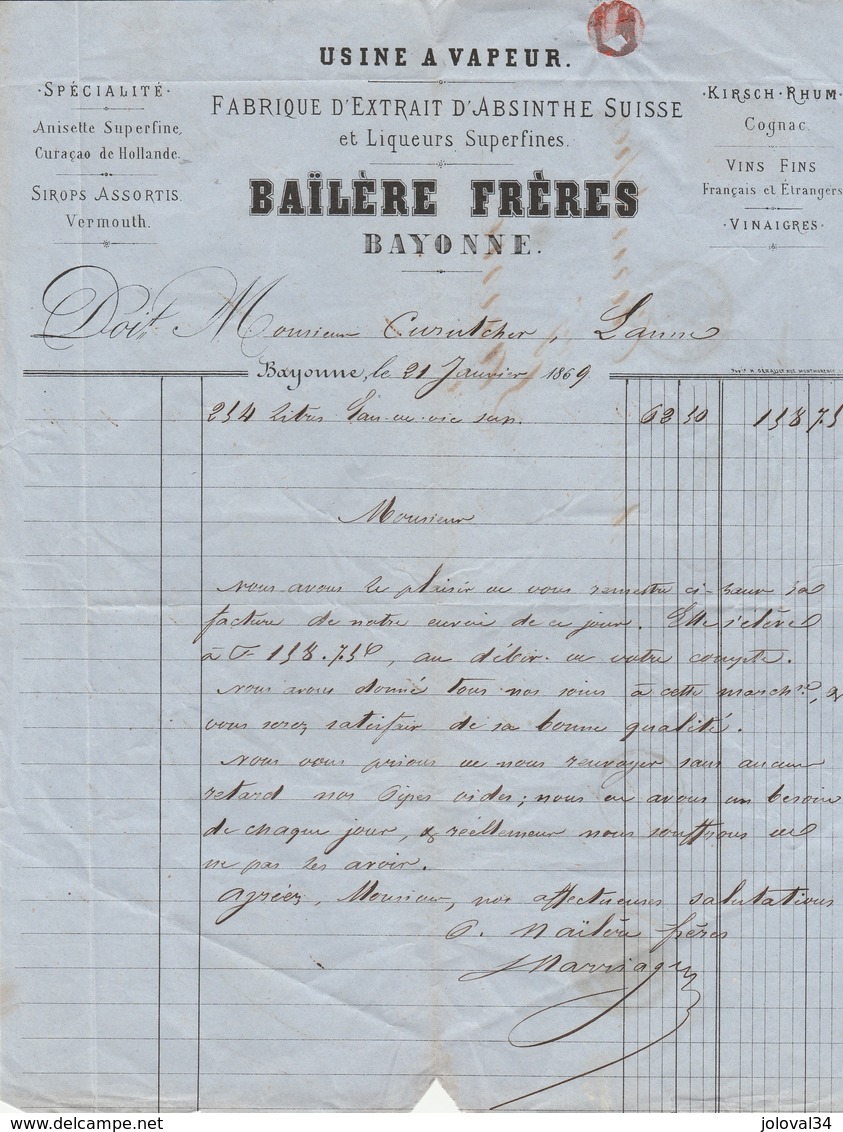 USINE A VAPEUR.
·SPÉCIALITÉ·
Anisette Superfine,
Curaçao de Hollande.
SIROPS ASSORTIS.
Vermouth.
FABRIQUE D'EXTRAIT D'ABSINTHE SUISSE
et Liqueurs Superfines.
BAÏLÈRE FRÈRES
BAYONNE.
·KIRSCH·RHUM·
Cognac.
VINS FINS
Français et Étrangers
·VINAIGRES·
Doit Monsieur Curutchet, Lanne
Bayonne, le 21 Janvier 1869
254 Litres Eau-de-vie 62 50 158 75
Monsieur
Nous avons le plaisir de vous remettre ci-haut la
facture de notre envoi de ce jour. Elle s'élève
à F 158.75c, au débit de votre compte.
Nous avons donné tous nos soins à cette marchse, &
vous serez satisfait de sa bonne qualité.
Nous vous prions de nous renvoyer sans aucun
retard nos Pipes vides; nous en avons un besoin
de chaque jour, & réellement nous souffrons de
ne pas les avoir.
Agréez, Monsieur, nos affectueuses salutations
P. Baïlère frères
delcampe.net
joloval34